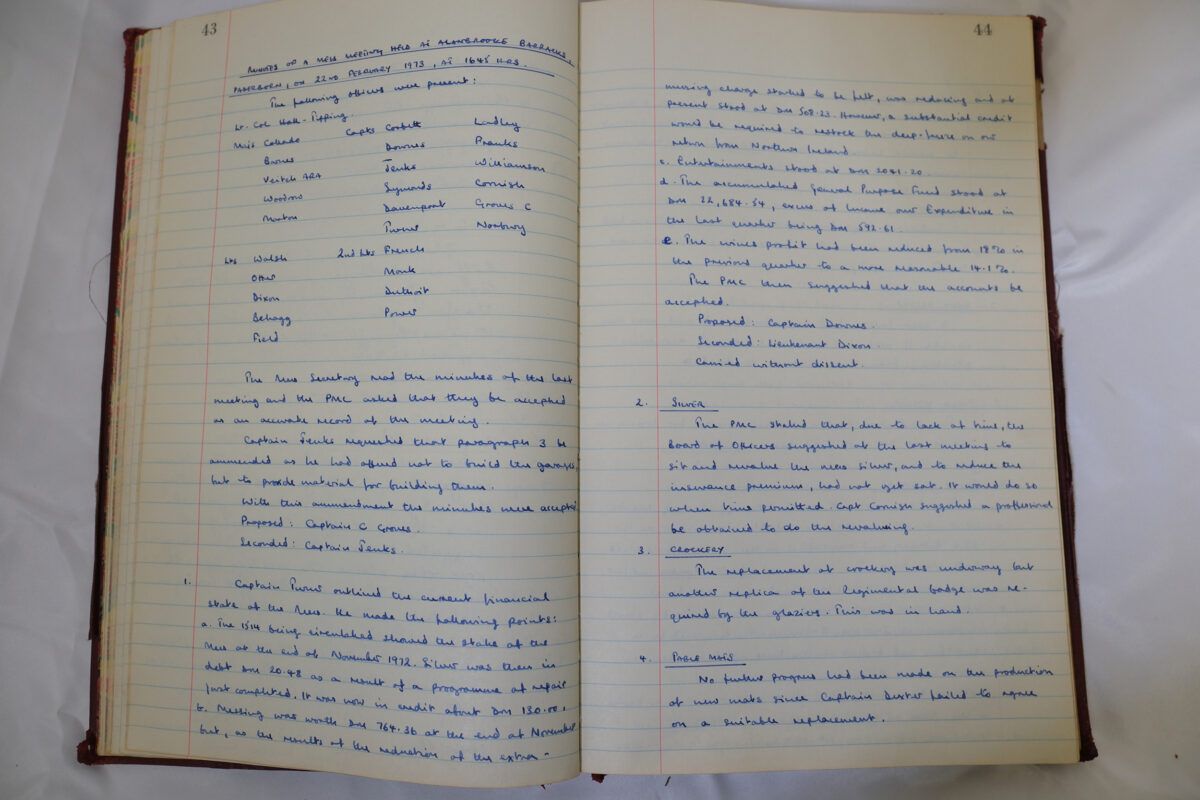 43
MINUTES OF A MESS MEETING HELD AT ALANBROOKE BARRACKS,
PADERBORN, ON 22ND FEBRUARY 1973, AT 1645 HRS.
The following officers were present:
Lt. Col Hall-Tipping.
Majs Calcado Capts Corbett Lindley
Barnes Downes Pranks
Veitch ARA Jenks Williamson
Woodrow Symonds Cornish
Morton Davenport Groves C
Turner Norbury
Lts Walsh 2nd Lts French
Otter Monk
Dixon Duthoit
Behagg Power
Field
The Mess Secretary read the minutes of the last
meeting and the PMC asked that they be accepted
as an accurate record of the meeting.
Captain Jenks requested that paragraph 3 be
ammended as he had offered not to build the garages,
but to provide material for building them.
With this ammendment the minutes were accepted
Proposed: Captain C Groves.
Seconded: Captain Jenks.
1. Captain Turner outlined the current financial
state of the Mess. He made the following points:
a. The 1514 being circulated showed the state of the
Mess at the end of November 1972. Silver was then in
debt DM 20.48 as a result of a programme of repair
just completed. It was now in credit about DM 130.00.
b. Messing was worth DM 764.36 at the end of November
but, as the results of the reduction of the extra-
44
messing charge started to be felt, was reducing and at
present stood at DM 508.23. However, a substantial credit
would be required to restock the deep-freeze on our
return from Northern Ireland.
c. Entertainments stood at DM 2041.20.
d. The accumulated General Purpose Fund stood at
DM 22,684.54, excess of Income over Expenditure in
the last quarter being DM 592.61.
e. The wines profit had been reduced from 18% in
the previous quarter to a more reasonable 14.1%.
The PMC then suggested that the accounts be
accepted.
Proposed: Captain Downes.
Seconded: Lieutenant Dixon.
Carried without dissent.
2. SILVER
The PMC stated that, due to lack of time, the
Board of Officers suggested at the last meeting to
sit and revalue the mess silver, and to reduce the
insurance premium, had not yet sat. It would do so
when time permitted. Capt Cornish suggested a professional
be obtained to do the revaluing.
3. CROCKERY
The replacement of crockery was underway but
another replica of the Regimental badge was re-
quired by the glaziers. This was in hand.
4. TABLE MATS
No further progress had been made on the production
of new mats since Captain Dexter failed to agree
on a suitable replacement.